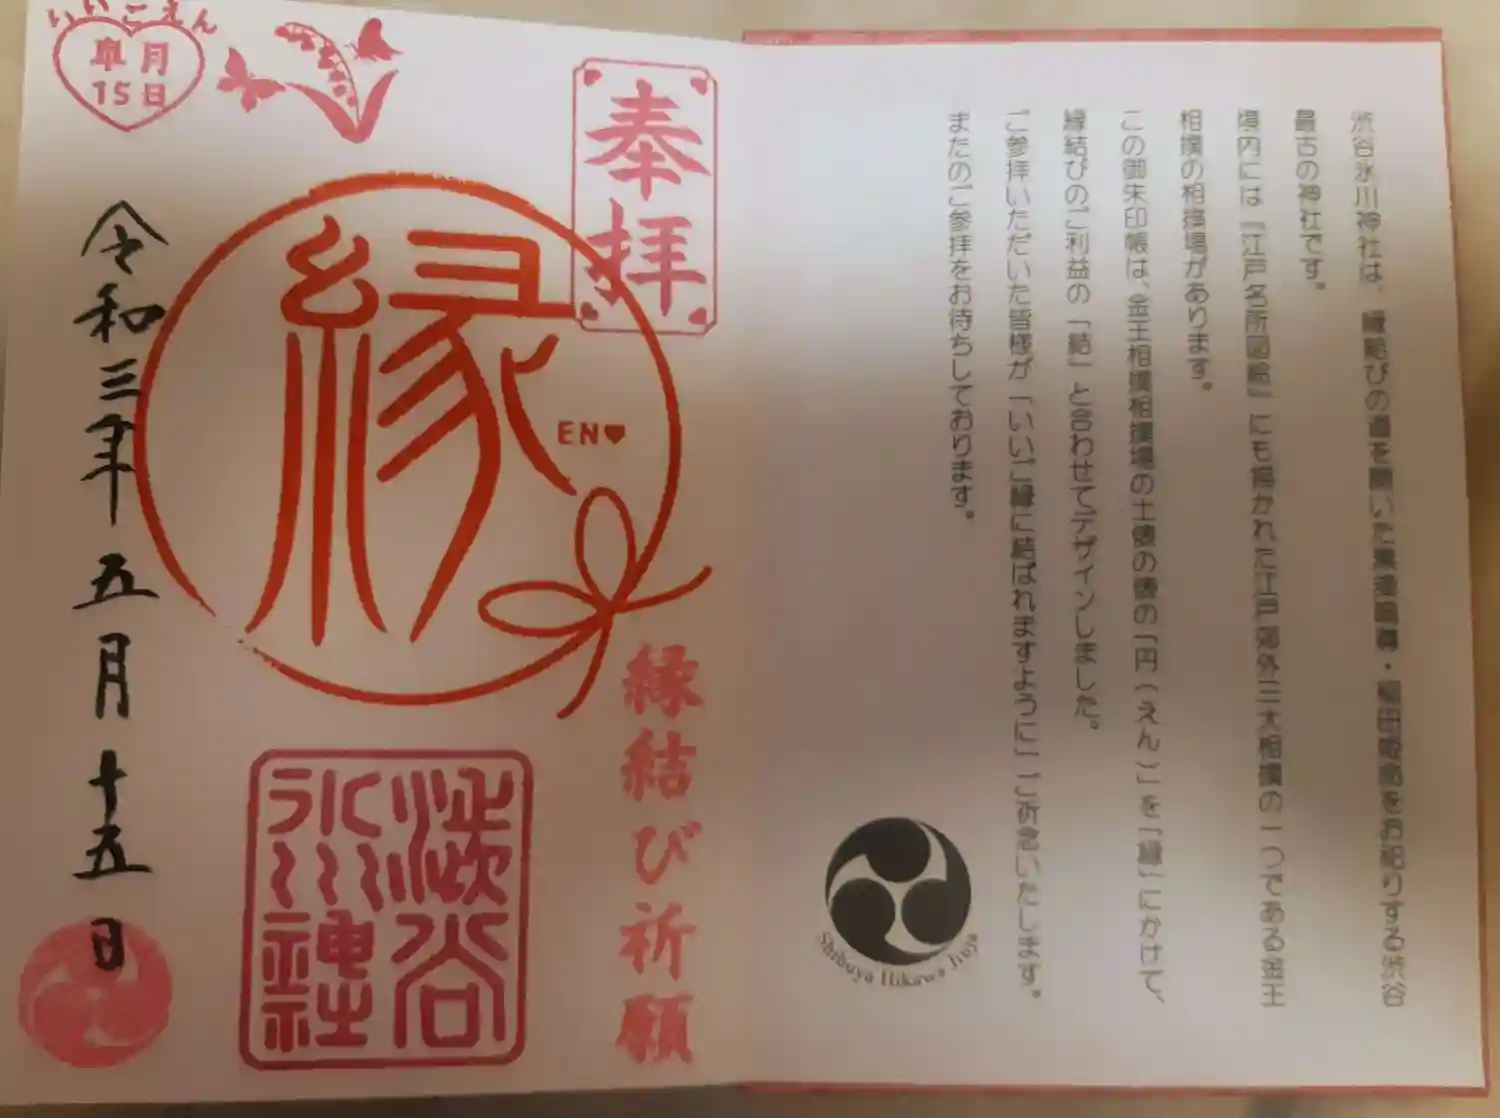 渋谷氷川神社は、縁結びの道を開いた素盞鳴尊・稲田姫命をお祀りする渋谷
最古の神社です。
境内には『江戸名所図絵』にも描かれた江戸郊外三大相撲の一つである金王
相撲の相撲場があります。
この御朱印帳は、金王相撲相撲場の土俵の俵の「円（えん）」を「縁」にかけて、
縁結びのご利益の「結」と合わせてデザインしました。
ご参拝いただいた皆様が「いいご縁に結ばれますように」ご祈念いたします。
またのご参拝をお待ちしております。
Shibuya Hikawa Jinja
奉拝
縁
EN♥
縁結び祈願
渋谷
氷川神社
いいごえん
皐月
15日
令和三年五月十五日